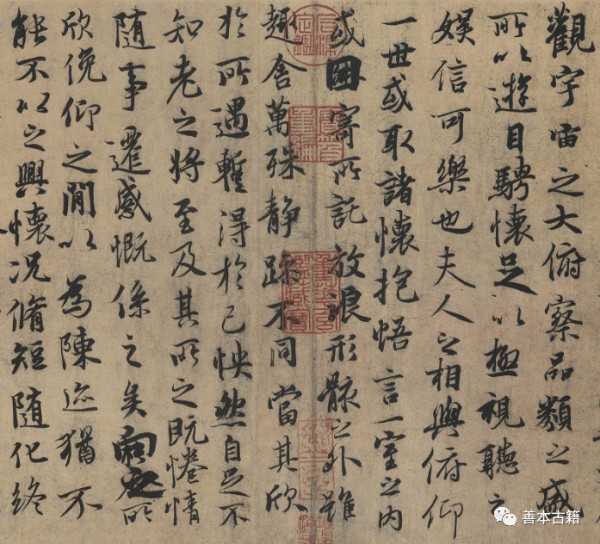 觀宇宙之大俯察品類之盛
所以遊目騁懷足以極視聽之
娛信可樂也夫人之相與俯仰
一世或取諸懷抱悟言一室之内
或因寄所託放浪形骸之外雖
趣舍萬殊静躁不同當其欣
於所遇暫得於己怏然自足不
知老之將至及其所之既惓情
隨事遷感慨係之矣向之所
欣俛仰之閒以為陳迹猶不
能不以之興懷况脩短隨化終
善本古籍